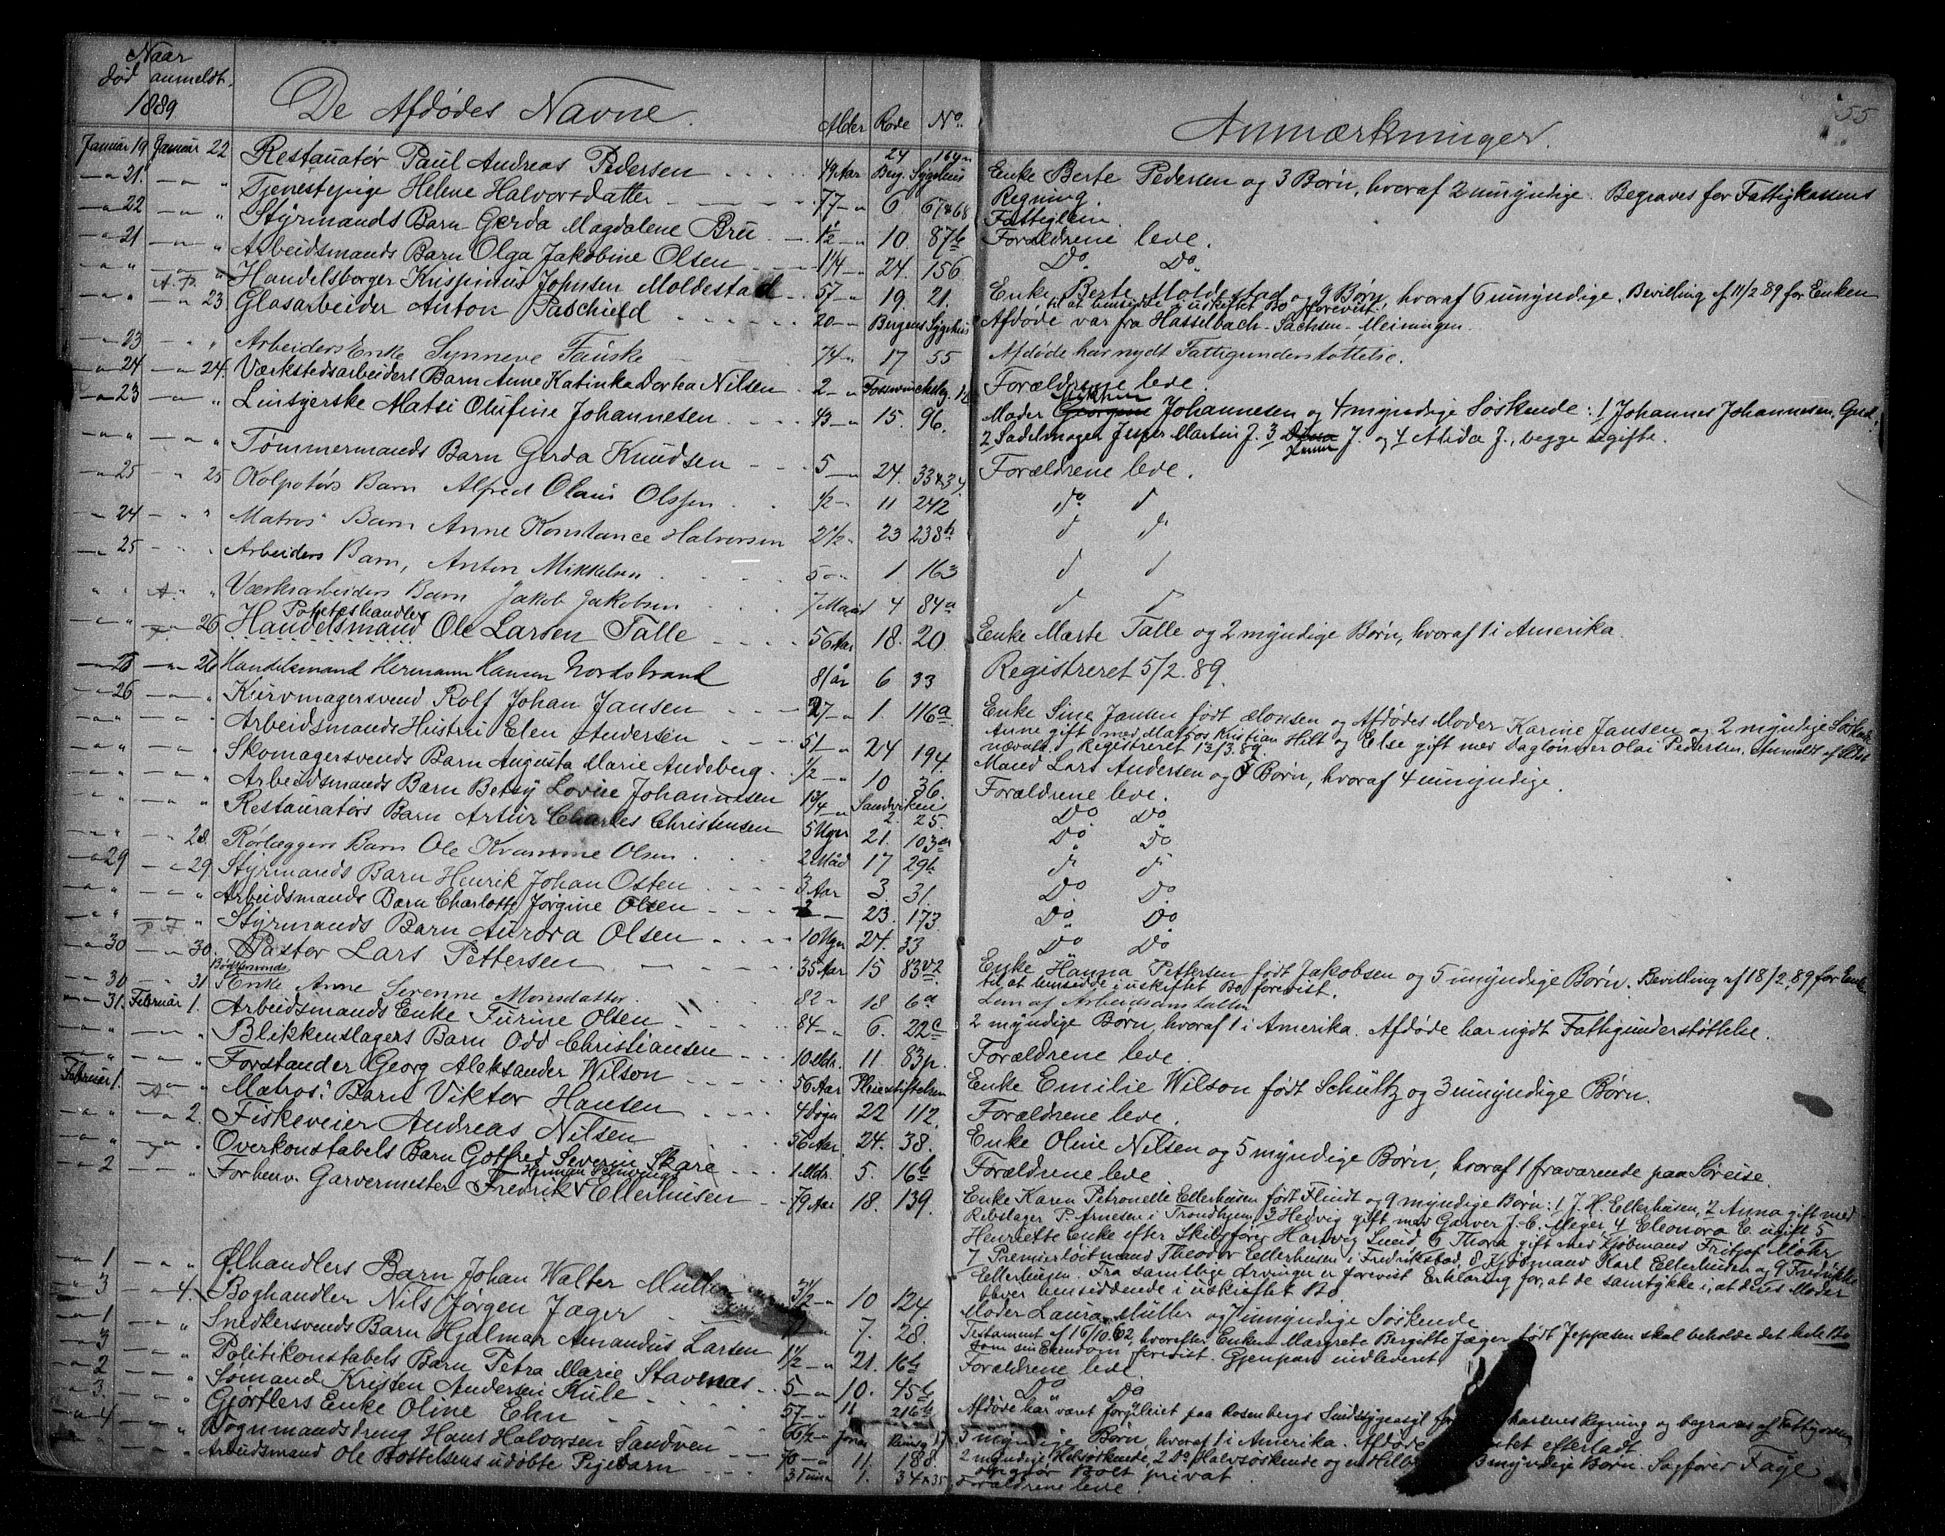 55
Naar
død anmeldt.
1889
De Afdødes Navne.
Alder Rode No.
Anmærkninger.
Januar 19 Januar 22 Restauratør Paul Andreas Pedersen 49 Aar 24 164 Enke Berte Pedersen og 3 Børn, hvoraf 2 umyndige. Begraves for Fattigkassens Regning.
21. " Tjenestepige Helene Halvorsdatter 77 6 67&68 Fattiglem
22 " Styrmands Barn Gerda Magdalene Bru 1½ 10. 87b Forældrene leve.
21 " Arbeidsmands Barn Olga Jakobine Olsen 1¼ 24. 156 Do Do
" " Handelsborger Krispinus Johnsen Moldestad 57 19. 21. Enke Berte Moldestad og 9 Børn, hvoraf 6 umyndige. Bevilling af 11/2 89 for Enken til at hensidde i uskiftet Bo forevist.
" 23. Glasarbeider Anton Paschield 20 Bergens Sygehus Afdøde var fra Hasselbach-Sachsen-Meiningen.
23 " Arbeiders Enke Synneve Fauske 74 17 55 Afdøde har nydt Fattigunderstøttelse.
24 24. Værkstedsarbeiders Barn Anne Katinka Dortea Nilsen 2 Forældrene leve.
23 " Linsyerske Matsi Olufine Johannesen 43 15. 96. Moder Johannesen og 4 myndige Søskende: 1 Johannes Johannesen, 2 Sadelmager Jesper Martin J. 3 J. og 4 Alida J., begge ugifte.
" " Tømmermands Barn Gerda Knudsen 5 24. 33&34. Forældrene leve.
25 25 Kolportørs Barn Alfred Olaus Olssen ½ 11 242 do d
24 " Matros' Barn Anne Konstance Halvorsen 2½ 23 238b d do
25 " Arbeiders Barn, Anton Mikkelsen 5 1. 163 d d
" " Værksarbeiders Barn Jakob Jakobsen 7 Maad 4 84a d d
" 26 Poteteshandler Handelsmand Ole Larsen Talle 56 Aar 18. 20 Enke Marte Talle og 2 myndige Børn, hvoraf 1 i Amerika.
26 Handelsmand Hermann Hansen Nordstrand 81 år 6 33 Registreret 5/2. 89.
26 " Kurvmagersvend Rolf Johan Jansen 27 1. 116a Enke Sine Jansen født Monsen og Afdødes Moder Karine Jansen og 2 myndige Søskende
Anne gift med Matros Kristian Hilt og Else gift med Daglønner Olai Pedersen, Registreret 13/3. 89.
" " Arbeidsmands Hustru Elen Andersen 51 24 194. Mand Lars Andersen og Børn, hvoraf 4 umyndige.
" " Skomagersvends Barn Augusta Marie Andeberg. ½ 10 36. Forældrene leve.
" " Arbeidsmands Barn Betsy Lovise Johannesen 1¾ Sandvikens 2. 25. Do Do
" " Restauratørs Barn Artur Charles Christensen 5 Uger 21. 103a Do Do
" 28. Rørlæggers Barn Ole Kramme Olsen 2 Maad 17 29b d d
29 29. Styrmands Barn Henrik Johan Osten 3 Aar 3. 31. Do Do
" " Arbeidsmands Barn Charlotte Jørgine Olsen 23. 173 Do Do
" " Styrmands Barn Aurora Olsen 10 Ugr 24. 33 Do Do
30 30. Pastor Lars Pettersen 35 Aar 15 83v2 Enke Hanna Pettersen født Jakobsen og 5 umyndige Børn. Bevilling af 18/2. 89 for Enke til, at hensidde i uskiftet Bo forevist.
30 31 Enke Anne Serenne Monsdatter 82 18 6a Lem af Arbeidsanstalten
31. Februar 1. Arbeidsmands Enke Turine Olsen 84 6. 22c 2 myndige Børn, hvoraf 1 i Amerika. Afdøde har nydt Fattigunderstøttelse.
" " Blikkenslagers Barn Odd Christiansen 10 Mdr. 11 83p. Forældrene leve.
" " Forstander Georg Aleksander Wilson 56 Aar Pleiestiftelsen Enke Emilie Wilson født Schultz og 3 umyndige Børn.
Februar 1. " Matros' Barn Viktor Hansen 4 Døgn 22 112. Forældrene leve.
" 2. Fiskeveier Andreas Nilsen 56 Aar. 24. 38. Enke Oline Nilsen og 5 myndige Børn, hvoraf 1 fraværende paa Søreise.
" " Overkonstabels Barn Gotfred Severin Skare 1 Mdr. 5. 16b Forældrene leve
2 " Forhenv. Garvermester Fredrik Ellerhusen 79 Aar 18. 139. Enke Karen Petronelle Ellerhusen født Flindt og 9 myndige Børn: 1 J. H. Ellerhusen, 2 Anna gift med
Rebslager P. Arnesen i Trondhjem, 3 Hedvig gift med Garver J. C. Meyer, 4 Eleonora E. ugift 5
Henriette Enke efter Skibsfører Hartvig Sneid 6 Thora gift med Kjøbmand Fritjof Mohr
7 Premierløitnand Theodor Ellerhusen i Fredrikstad, 8 Kjøbmand Karl Ellerhusen og 9 Fredrikke
Ellerhusen. Fra samtlige Arvinger er forevist Erklæring for, at de samtykke i, at deres Moder
bliver hensiddende i uskiftet Bo.
1 " Ølhandlers Barn Johan Walter Muller 3½ 10 124. Moder Laura Muller og 7 umyndige Søskende.
3 4. Boghandler Nils Jørgen Jæger 7. 28. Testament af 16/10. 62, hvorefter Enken Margrete Bergitte Jæger født Jeppesen skal beholde det hele Bo som sin Eiendom, forevist. Gjenpart indleveret.
1 " Snedkersvends Barn Hjalmar Amandus Larsen 1½ 21. 16b Forældrene leve.
3 " Politikonstabels Barn Petra Marie Stavenæs 5 10. 45b Do Do
2 " Sømand Kristen Andersen Kule 57 11 216b Afdøde har været forpleiet paa Rosenbergs Sindsygeasyl Regning og begraves af Fattigvæsen
3. " Gjørtlers Enke Oline Ehn 3 myndige Børn, hvoraf 1 i Amerika. Afdøde efterladt
4 " Vognmandsdreng Hans Halvorsen Sandven 11. 188. 2 myndige Helsøskende, 2 Do Halvsøskende og 3 myndige Børn. Sagfører Faye opgjør Boet privat.
" " Arbeidsmand Ole Bottelsens udøbte Pigebarn 3 Timer 1. 34&35 Forældrene leve.